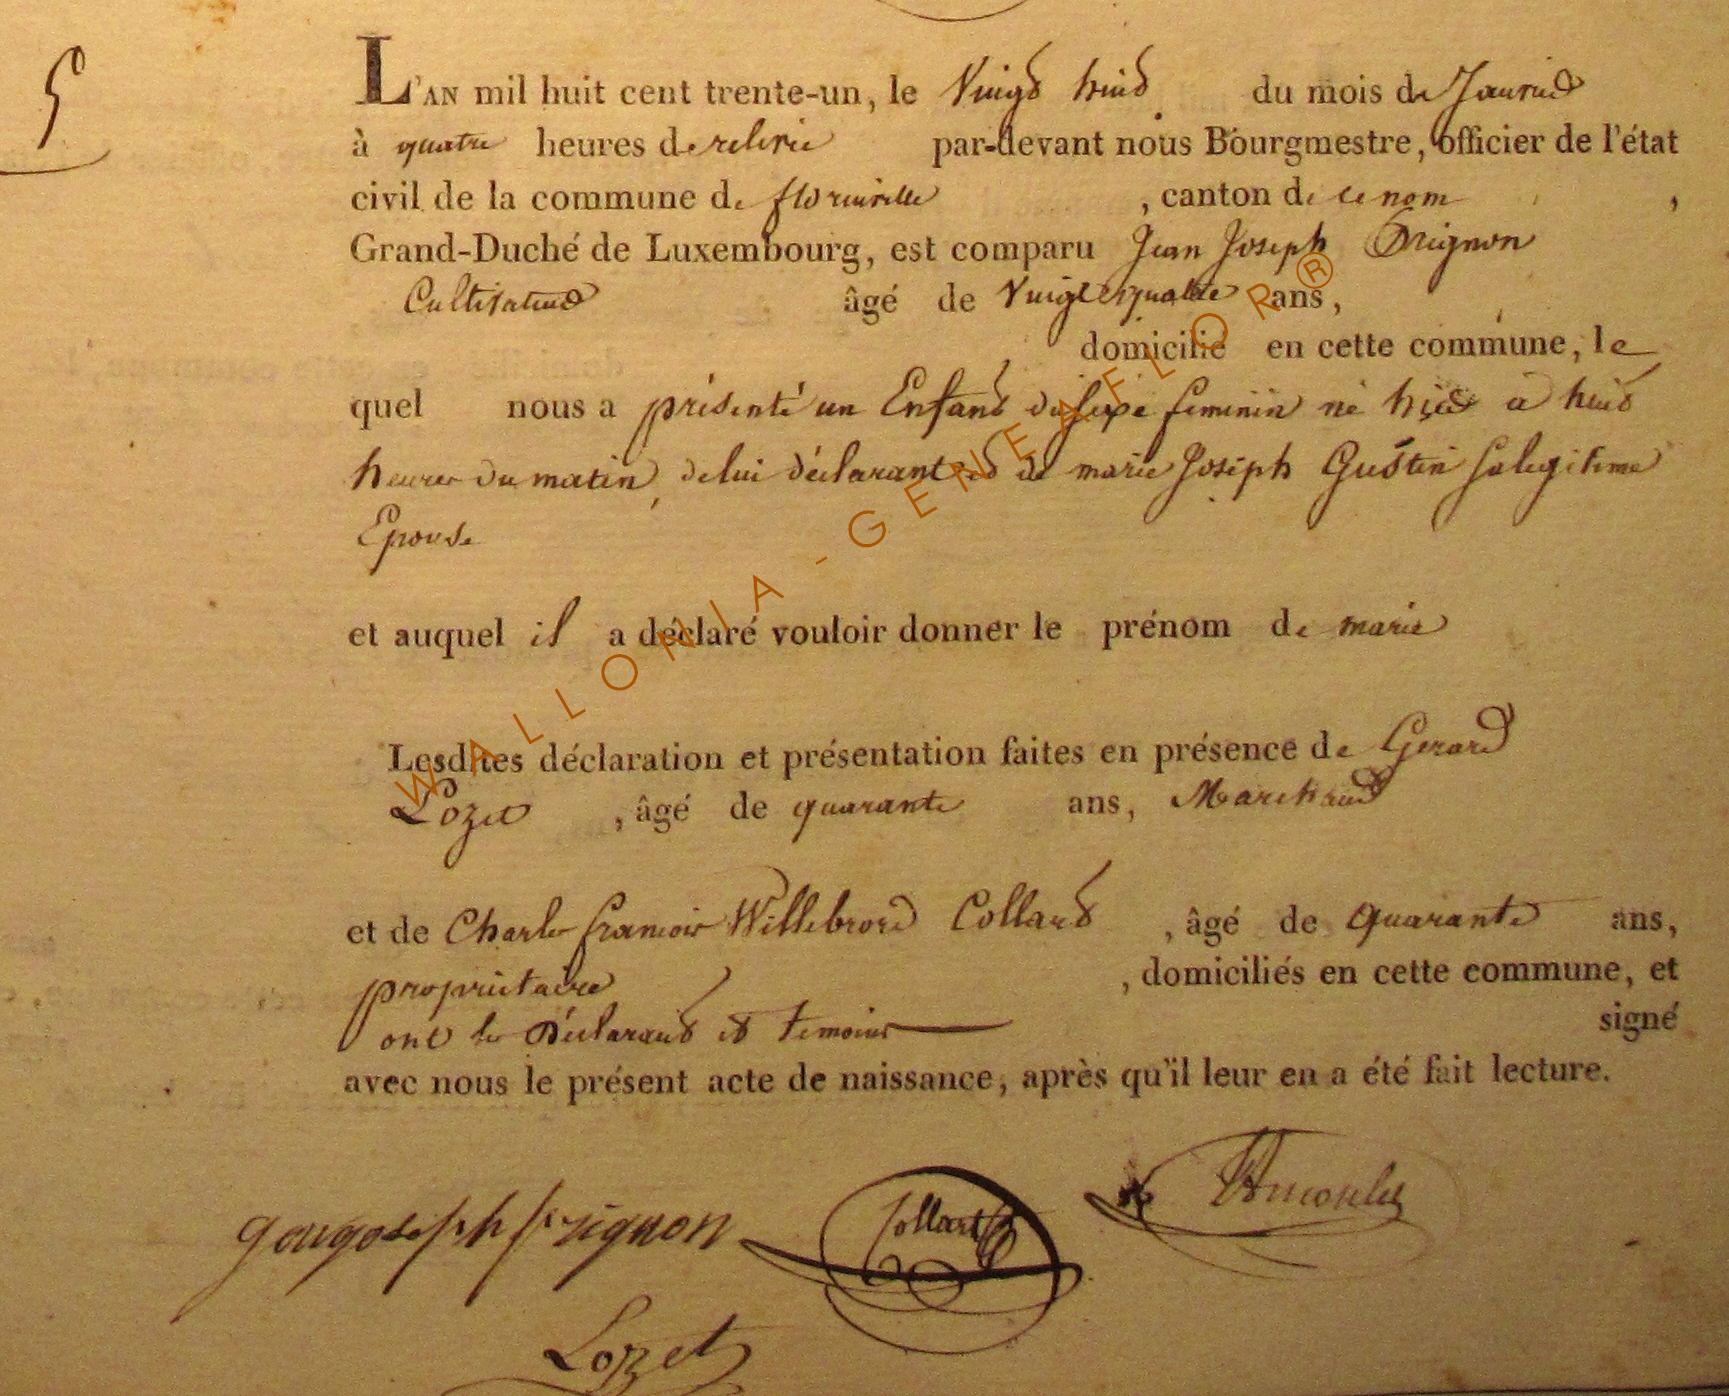 5
L'AN mil huit cent trente-un, le Vingt huit du mois de Janvier
à quatre heures de relevée par-devant nous Bourgmestre, officier de l'état
civil de la commune de florenville, canton de ce nom,
Grand-Duché de Luxembourg, est comparu Jean Joseph Prignon
Cultivateur âgé de Vingt et quatre ans,
domicilié en cette commune, le
quel nous a présenté un Enfant du sexe feminin né hier à huit
heures du matin, de lui déclarant et de marie Joseph Gustin sa legitime
Epouse
et auquel il a déclaré vouloir donner le prénom de marie
Lesdites déclaration et présentation faites en présence de Gerard
Lozet, âgé de quarante ans, Marchand
et de Charles francois Willebrord Collard, âgé de quarante ans,
propriétaire, domiciliés en cette commune, et
ont les Déclarant et temoins signé
avec nous le présent acte de naissance, après qu'il leur en a été fait lecture.
Collard
Lozet
WALLONIA-GENEAFLOR®